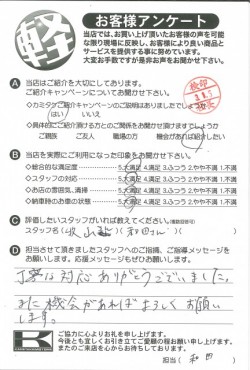 軽
お客様アンケート
当店では、お買い上げ頂いたお客様の声を可能
な限り現場に反映し、お客様により良い商品と
サービスを提供する事に努めています。
大変お手数ですが是非お声をお聞かせ下さい。
A 当店はご紹介を大切にしております。
ご紹介キャンペーンについてお聞かせ下さい
•カミタケご紹介キャンペーンのご説明はありましたでしょうか
はい いいえ
•具体的にご紹介頂ける方とのご関係をお聞かせ頂けますでしょうか
ご親族 ご友人 職場の方 機会があれば紹介したい
B 当店を実際にご利用になった印象をお聞かせ下さい。
•総合的な満足度 5.大満足 4.満足 3.ふつう 2.やや不満 1.不満
•スタッフの対応 5.大満足 4.満足 3.ふつう 2.やや不満 1.不満
•お店の雰囲気、清掃 5.大満足 4.満足 3.ふつう 2.やや不満 1.不満
•納車時のお車の状態 5.大満足 4.満足 3.ふつう 2.やや不満 1.不満
C 辞価したいスタッフがいれば教えてください。(複数回答可)
スタッフ名( 山 )( 和田さん )
D 担当させて頂きましたスタッフへのご指導、ご指導メッセージを
お願いします。応援メッセージもぜひお願いします。
丁寧な対応ありがとうございました。
また機会があればよろしくお願い
します。
ご協力に心よりお礼を申し上げます。
今後とも宜しくお引き立てご愛顧の程お願い申し上げます。
またのご来店を心からお待ちしております。
担当( 和田 )